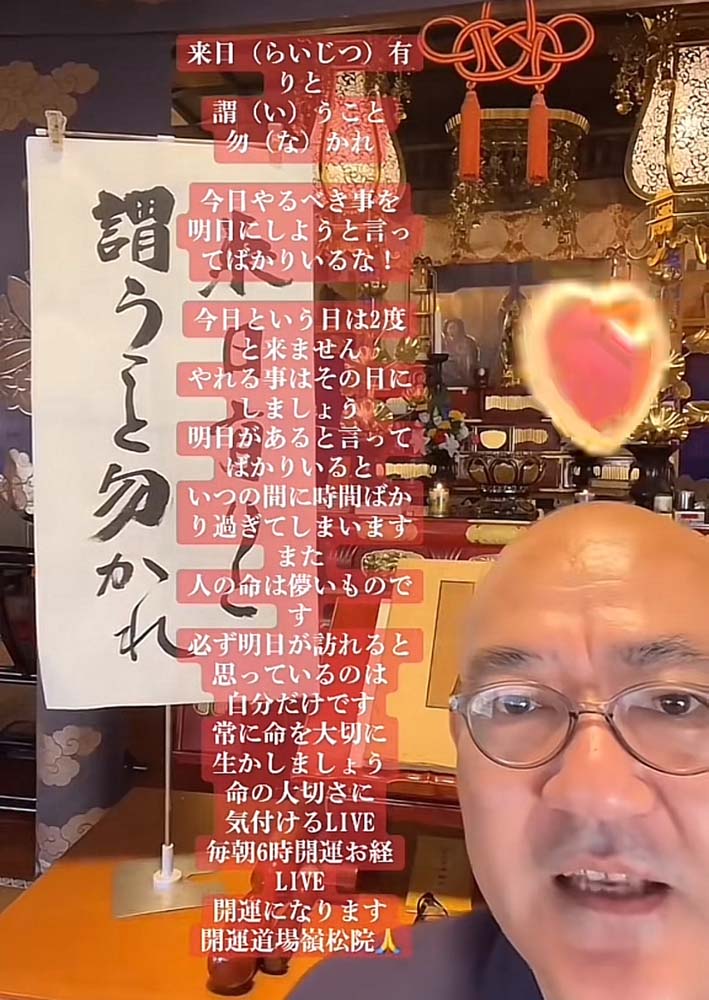 来日（らいじつ）有
りと
謂（い）うこと
勿（な）かれ
今日やるべき事を
明日にしようと言っ
てばかりいるな！
今日という日は2度
と来ません
やれる事はその日に
しましょう
明日があると言って
ばかりいると
いつの間に時間ばか
り過ぎてしまいます
また
人の命は儚いもので
す
必ず明日が訪れると
思っているのは
自分だけです
常に命を大切に
生かしましょう
命の大切さに
気付けるLIVE
毎朝6時開運お経
LIVE
開運になります
開運道場嶺松院🙏
来日有りと
謂うこと勿かれ